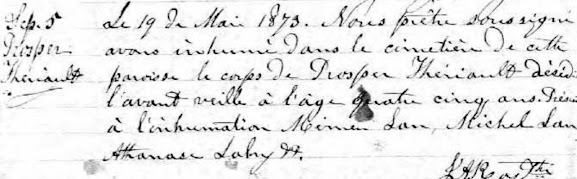 Sep. 5
Prosper
Thériault
Le 19 de Mai 1873. Nous prêtre soussigné
avons inhumé dans le cimetière de cette
paroisse le corps de Prosper Thériault décédé
l'avant veille à l'âge quatre cinq ans. Prése
à l'inhumation Lan, Michel Lan
Athanase &.